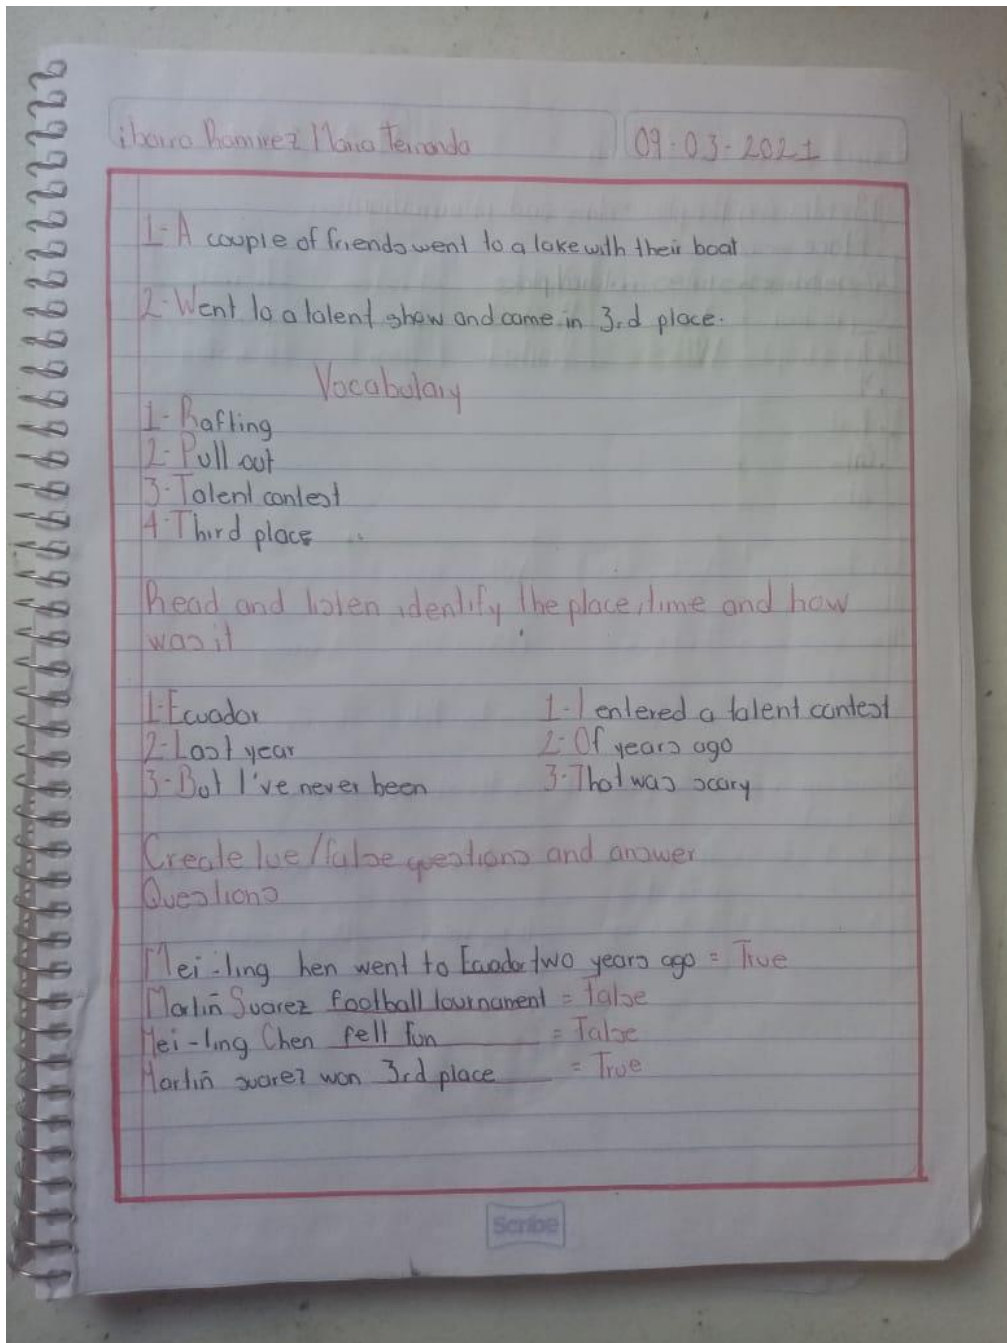 ibarra Ramirez Maria Fernanda 09-03-2021
1- A couple of friends went to a lake with their boat
2- Went to a talent show and came in 3rd place.
Vocabulary
1- Rafting
2- Pull out
3- Talent contest
4- Third place
Read and listen identify the place, time and how
was it
1- Ecuador 1- I entered a talent contest
2- Last year 2- Of years ago
3- But I've never been 3- That was scary
Create tue/false questions and answer
Questions
Mei-ling hen went to Ecuador two years ago = True
Martiñ Suarez football tournament = False
Mei-ling Chen fell fun = False
Martiñ suarez won 3rd place = True
Scribe